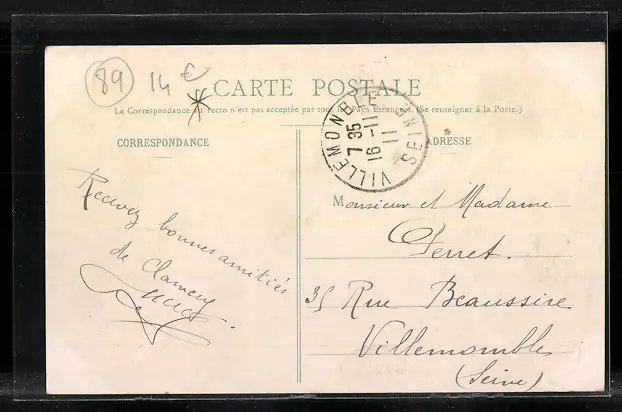 89
14 €
CARTE POSTALE
La Correspondance au recto n'est pas acceptée par tous les Pays Etrangers. (Se renseigner à la Poste.)
CORRESPONDANCE
ADRESSE
VILLEMONBLE SEINE
7 35
16 - 11
11
Recevez
bonnes amitiés
de Clamecy
Monsieur et Madame
Perret.
35 Rue Beaussire
Villemomble
(Seine)